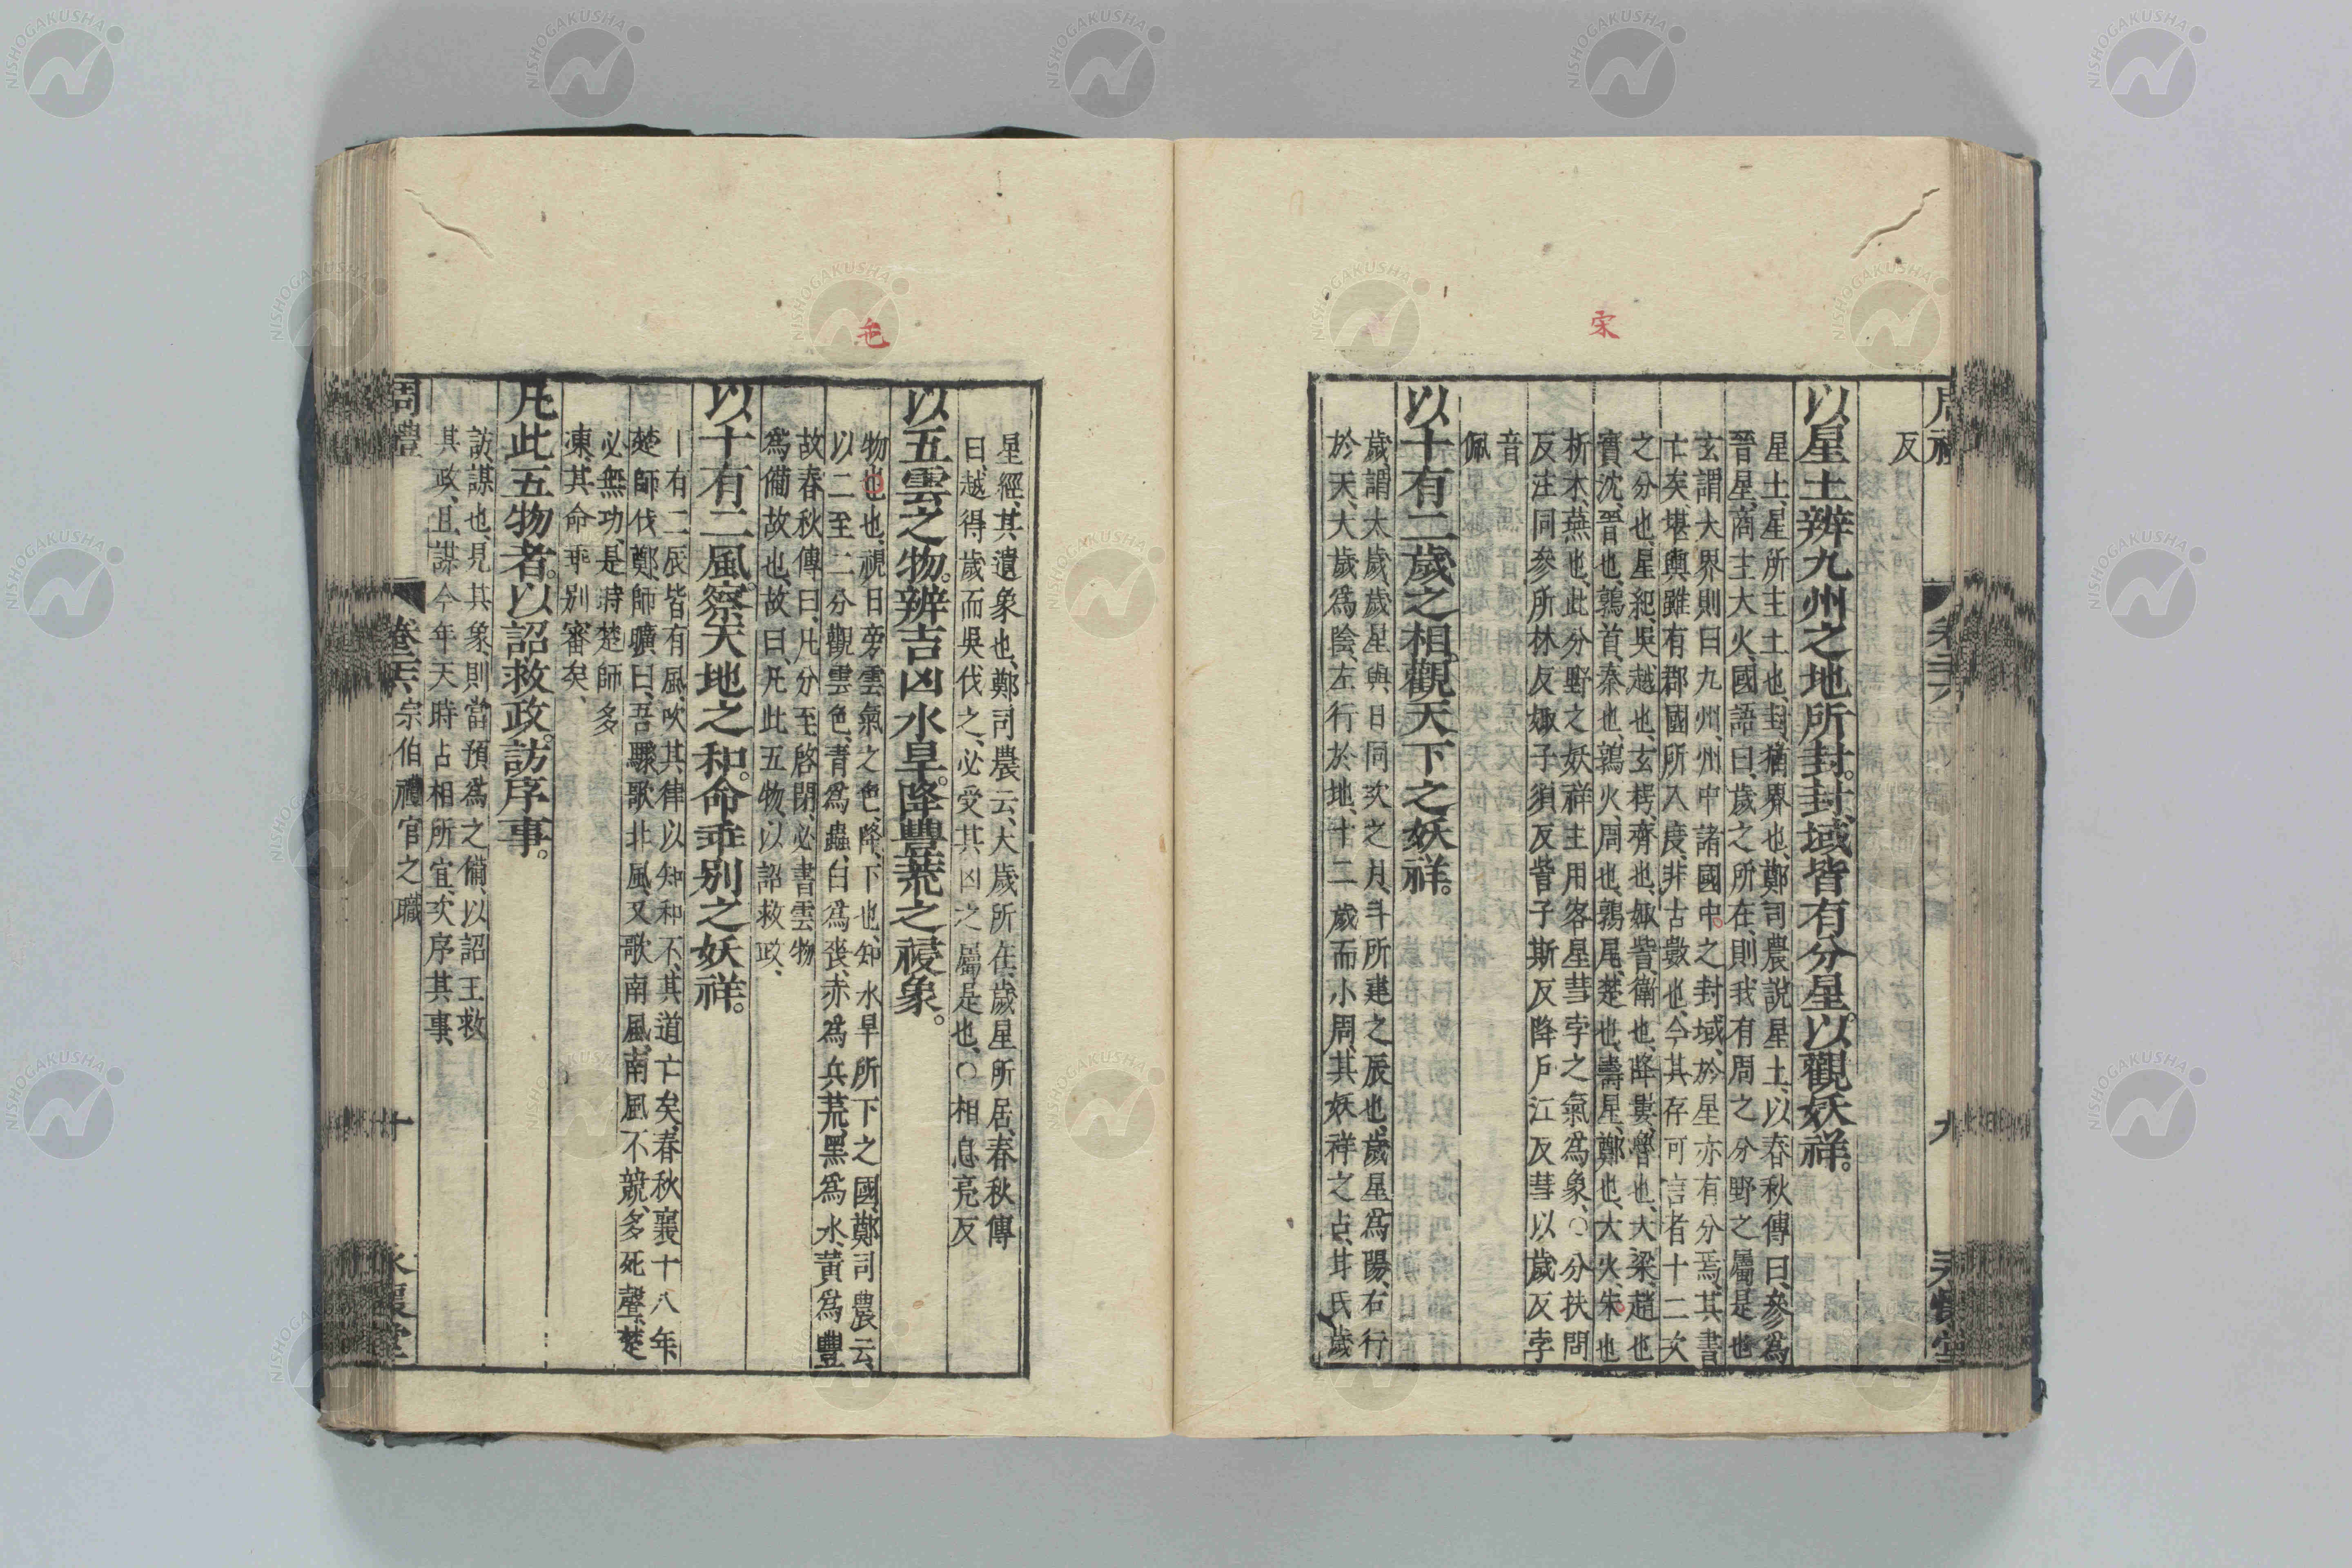 宋
周禮
九
反
以星土辨九州之地所封。封域皆有分星。以觀妖祥。
星土、星所主土也、封、猶界也、鄭司農說星土、以春秋傳曰、參為
晉星、商主大火、國語曰、歲之所在、則我有周之分野之屬是也
玄謂大界則曰九州、州中諸國中之封域、於星亦有分焉、其書
亡矣、堪輿雖有郡國所入度、非古數也、今其存可言者十二次
之分也、星紀、吳越也、玄枵、齊也、娵訾、衛也、降婁、魯也、大梁、趙也
實沈、晉也、鶉首、秦也、鶉火、周也、鶉尾、楚也、壽星、鄭也、大火、宋也
析木、燕也、此分野之妖祥主用客星彗孛之氣為象、○分扶問
反注同參所林反娵子須反訾子斯反降戶江反彗以歲反孛
音
佩
以十有二歲之相。觀天下之妖祥。
歲謂太歲、歲星與日同次之月、斗所建之辰也、歲星為陽、右行
於天、大歲為陰、左行於地、十二歲而小周、其妖祥之占、甘氏歲
毛
星經、其遺象也、鄭司農云、大歲所在、歲星所居、春秋傳
曰、越得歲而吳伐之、必受其凶之屬是也、○相息亮反
以五雲之物。辨吉凶水旱。降豐荒之祲象。
物也也、視日旁雲氣之色、降、下也、知水旱所下之國、鄭司農云、
以二至二分觀雲色、青為蟲、白為喪、赤為兵荒、黑為水、黃為豐
故春秋傳曰、凡分至啓閉、必書雲物
為備故也、故曰凡此五物、以詔救政、
以十有二風。察天地之和。命乖別之妖祥。
十有二辰皆有風、吹其律以知和不、其道亡矣、春秋襄十八年、
楚師伐鄭、師曠曰、吾驟歌北風、又歌南風、南風不競、多死聲、楚
必無功、是時楚師多
凍、其命乖別審矣、
凡此五物者。以詔救政。訪序事。
訪、謀也、見其象、則當預為之備、以詔王救
其政、且謀今年天時占相所宜、次序其事、
周禮
宗伯禮官之職
十
永懷堂
NISHOGAKUSHA